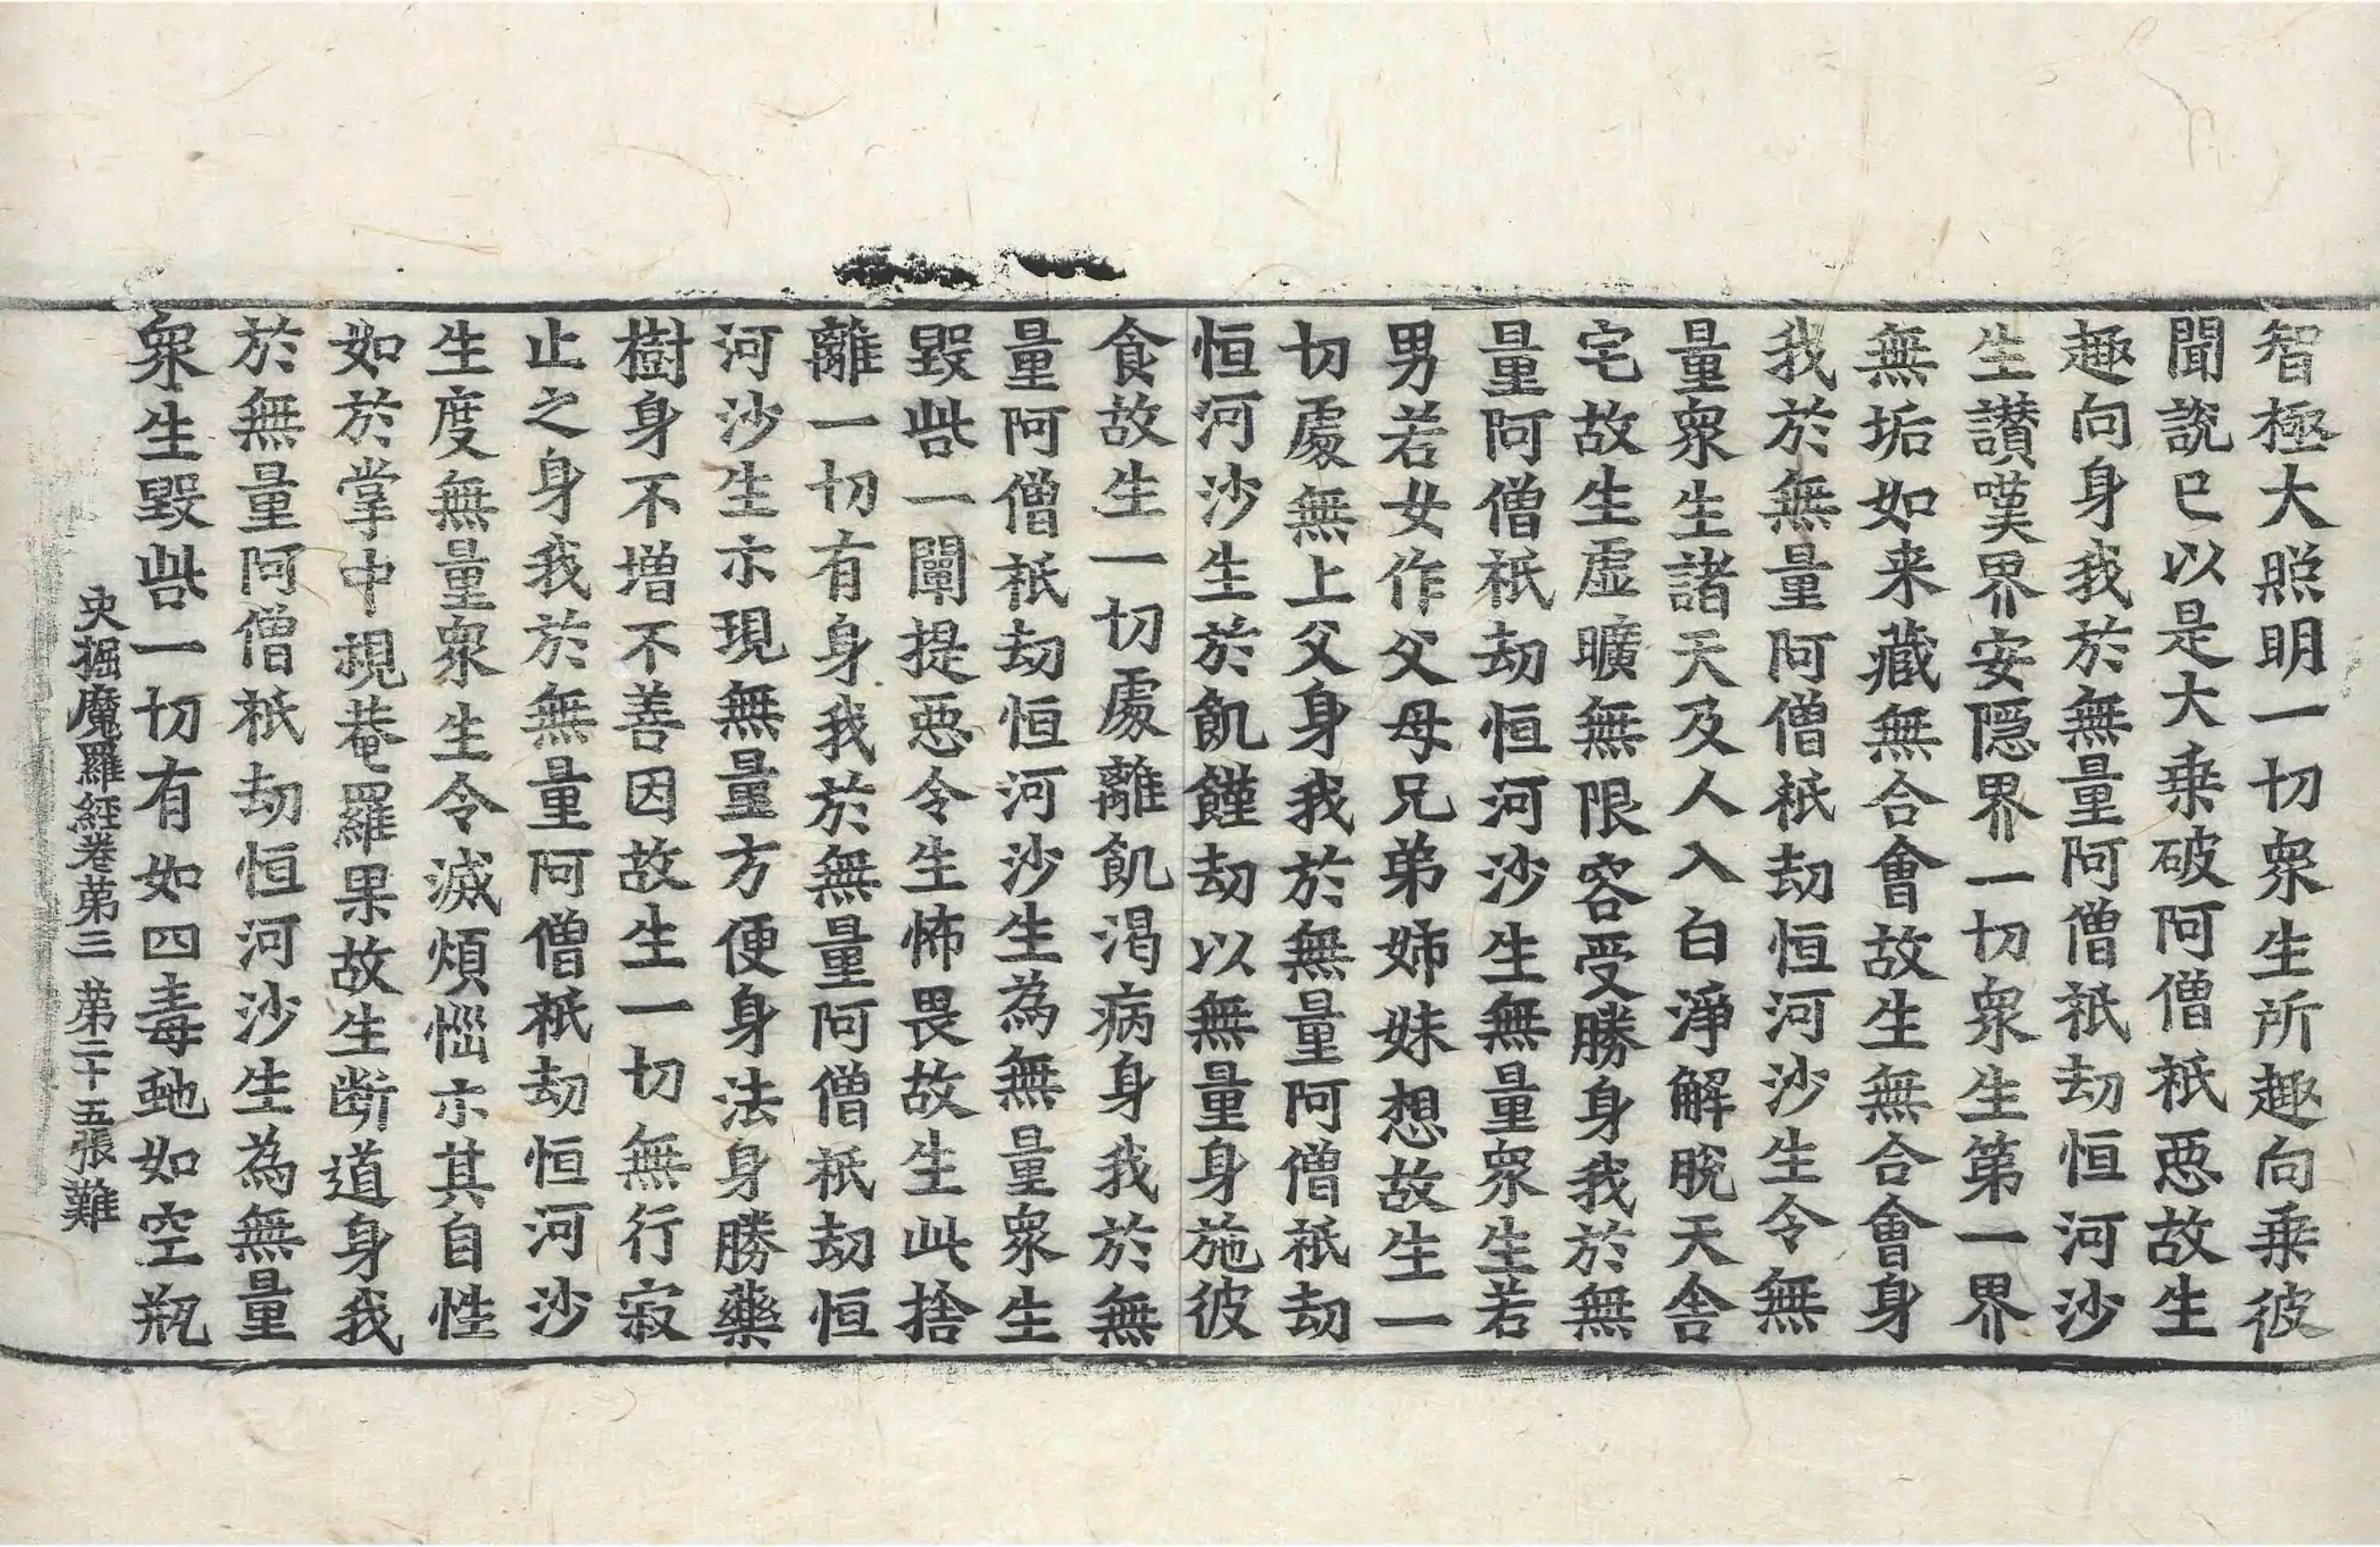 智極大照明一切衆生所趣向乗彼
聞說已以是大乗破阿僧祇惡故生
趣向身我於無量阿僧祇劫恒河沙
生讃嘆界安隱界一切衆生第一界
無垢如来藏無合會故生無合會身
我於無量阿僧祇劫恒河沙生令無
量衆生諸天及人入白淨解脫天舎
宅故生虛曠無限容受勝身我於無
量阿僧祇劫恒河沙生無量衆生若
男若女作父母兄弟姉妹想故生一
切處無上父身我於無量阿僧祇劫
恒河沙生於飢饉劫以無量身施彼
食故生一切處離飢渴病身我於無
量阿僧祇劫恒河沙生為無量衆生
毀呰一闡提惡令生怖畏故生此捨
離一切有身我於無量阿僧祇劫恒
河沙生示現無量方便身法身勝藥
樹身不增不善因故生一切無行寂
止之身我於無量阿僧祇劫恒河沙
生度無量衆生令滅煩惱示其自性
如於掌中視菴羅果故生断道身我
於無量阿僧祇劫恒河沙生為無量
衆生毀呰一切有如四毒虵如空瓶
央掘魔羅經卷第三 第二十五張 難